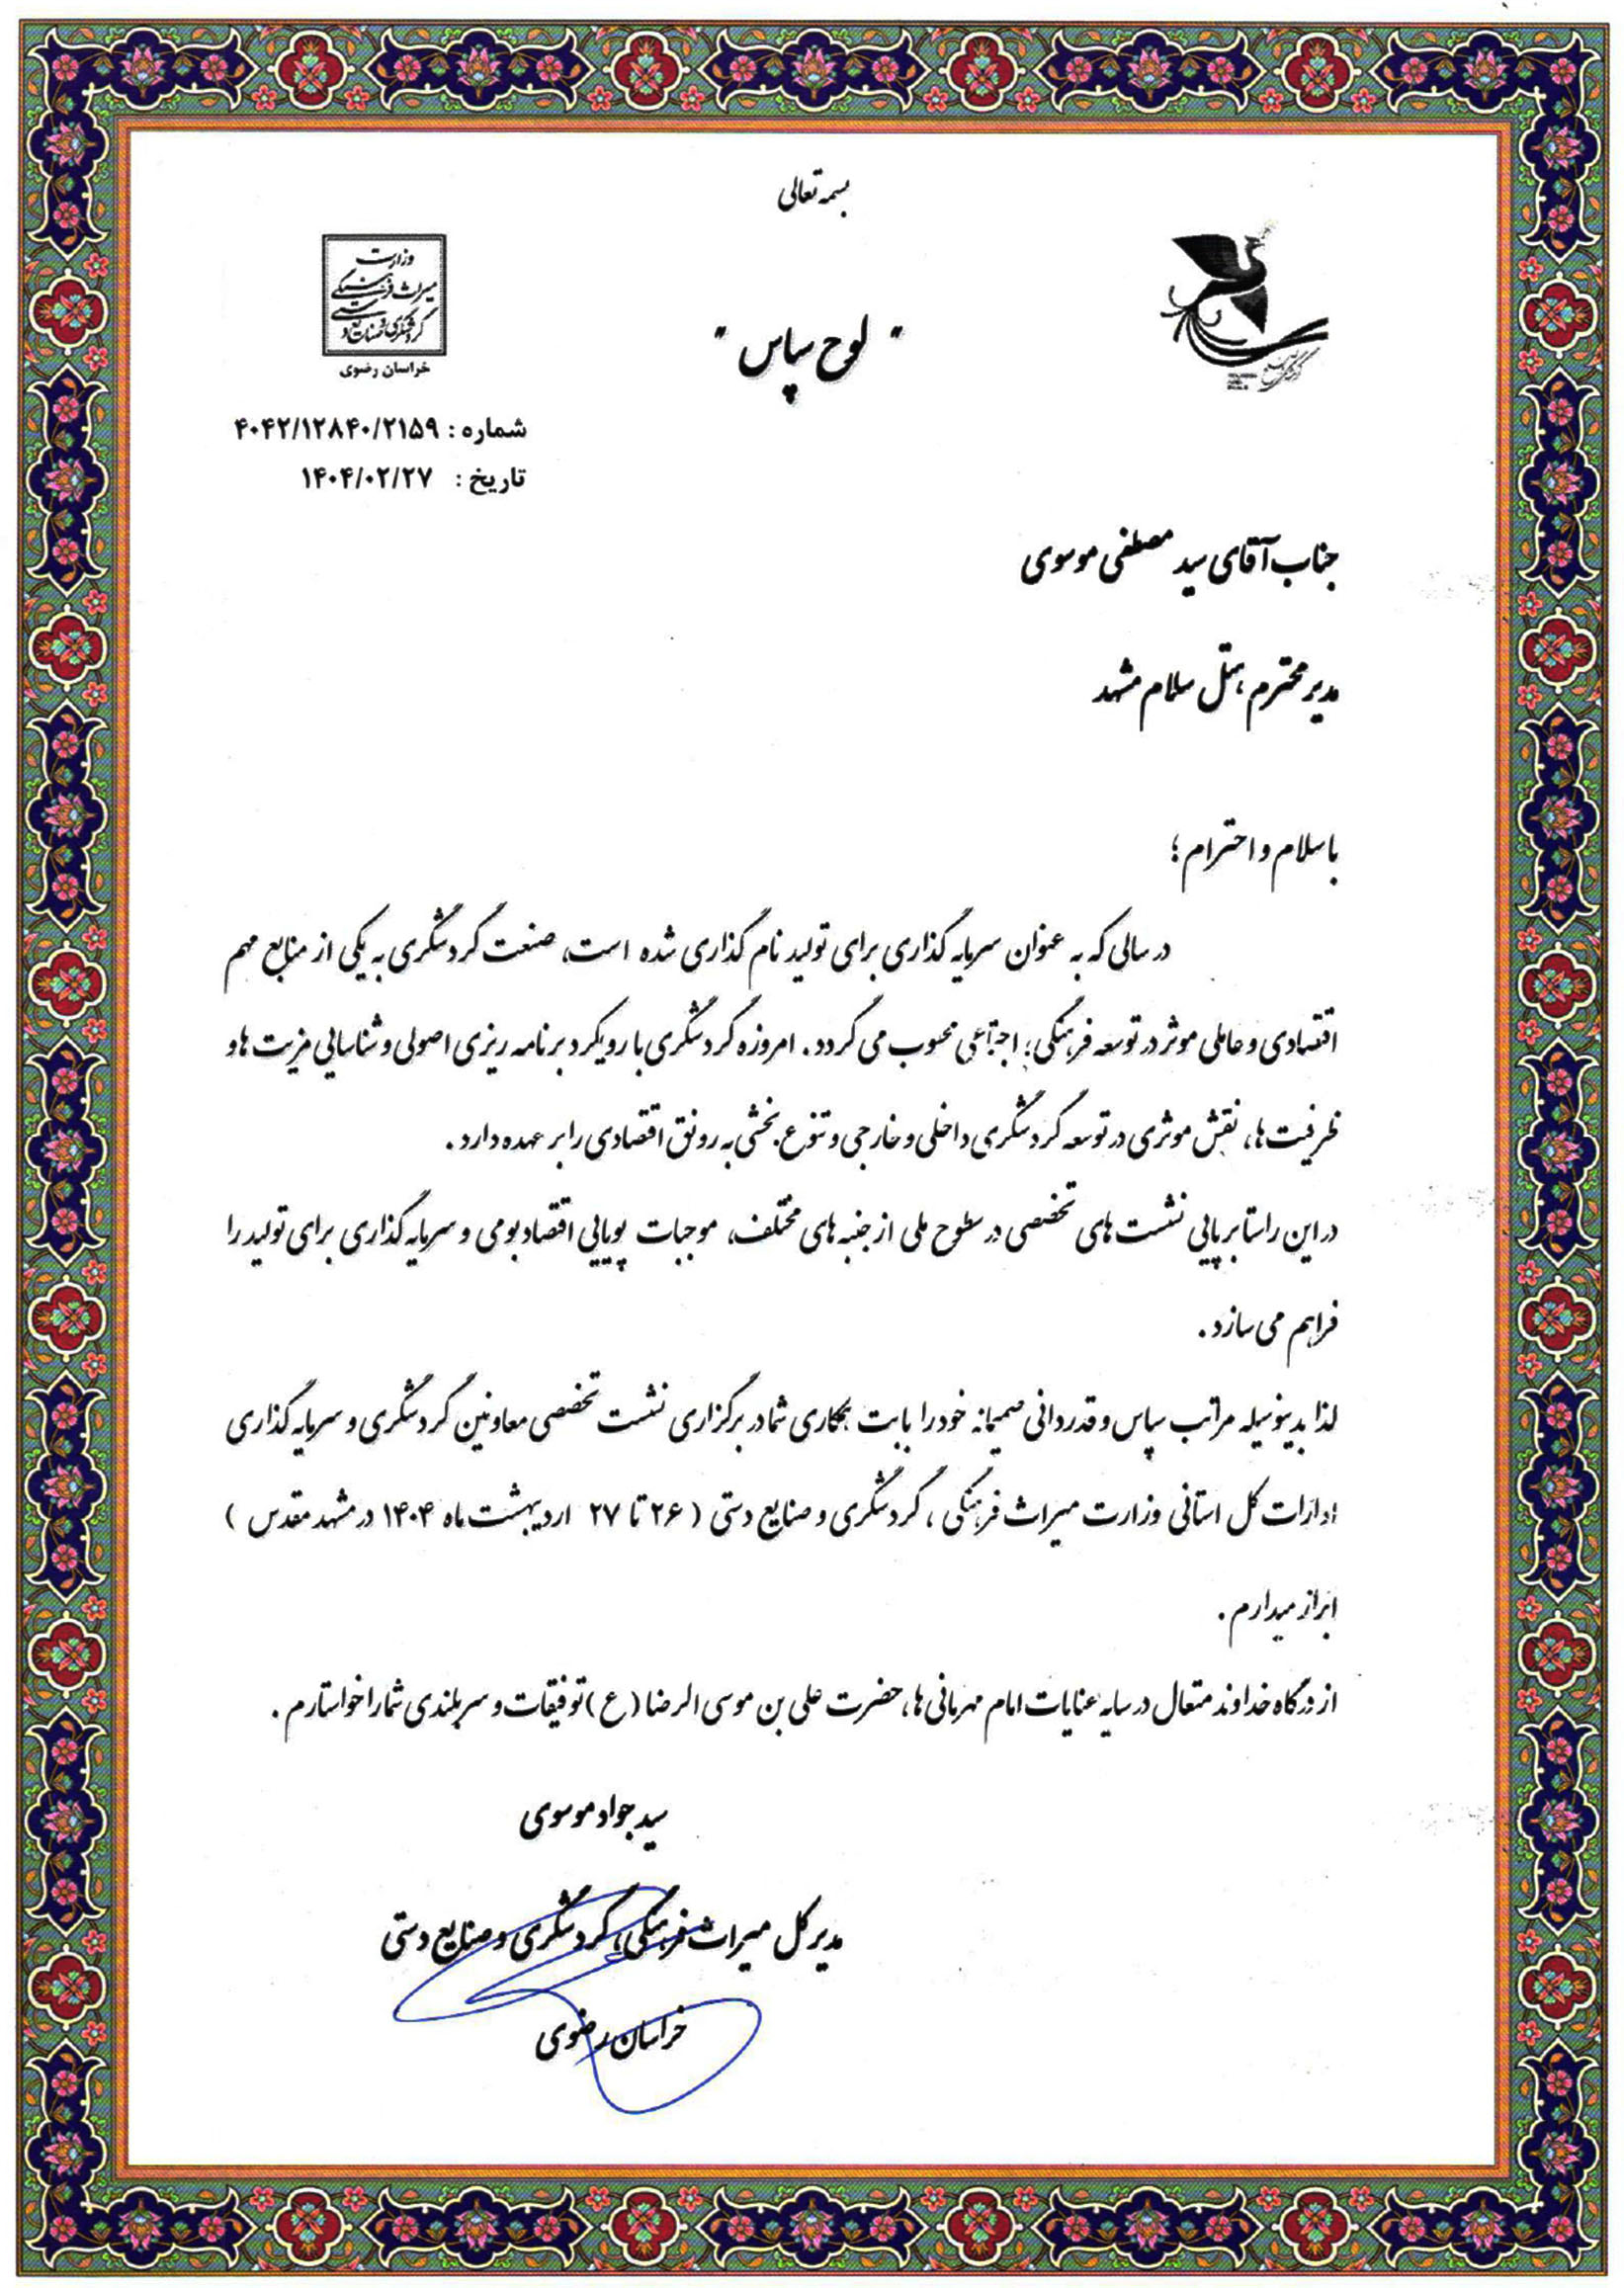 بسمه تعالی
وزارت
میراث فرهنگی
گردشگری و صنایع دستی
خراسان رضوی
" لوح سپاس "
شماره : ۴۰۴۲/۱۲۸۴۰/۲۱۵۹
تاریخ : ۱۴۰۴/۰۲/۲۷
جناب آقای سید مصطفی موسوی
مدیر محترم هتل سلام مشهد
با سلام و احترام ؛
در سالی که به عنوان سرمایه گذاری برای تولید نام گذاری شده است، صنعت گردشگری به یکی از منابع مهم
اقتصادی و عاملی موثر در توسعه فرهنگی؛ اجتماعی محسوب می گردد. امروزه گردشگری با رویکرد برنامه ریزی اصولی و شناسایی مزیت ها و
ظرفیت ها، نقش موثری در توسعه گردشگری داخلی و خارجی و تنوع بخشی به رونق اقتصادی را بر عهده دارد .
در این راستا برپایی نشست های تخصصی در سطوح ملی از جنبه های مختلف، موجبات پویایی اقتصاد بومی و سرمایه گذاری برای تولید را
فراهم می سازد .
لذا بدینوسیله مراتب سپاس و قدردانی صمیمانه خود را بابت همکاری شما در برگزاری نشست تخصصی معاونین گردشگری و سرمایه گذاری
ادارات کل استانی وزارت میراث فرهنگی ، گردشگری و صنایع دستی ( ۲۶ تا ۲۷ اردیبهشت ماه ۱۴۰۴ در مشهد مقدس )
ابراز میدارم .
از درگاه خداوند متعال در سایه عنایات امام مهربانی ها، حضرت علی بن موسی الرضا (ع) توفیقات و سربلندی شما را خواستارم .
سید جواد موسوی
مدیر کل میراث فرهنگی، گردشگری و صنایع دستی
خراسان رضوی